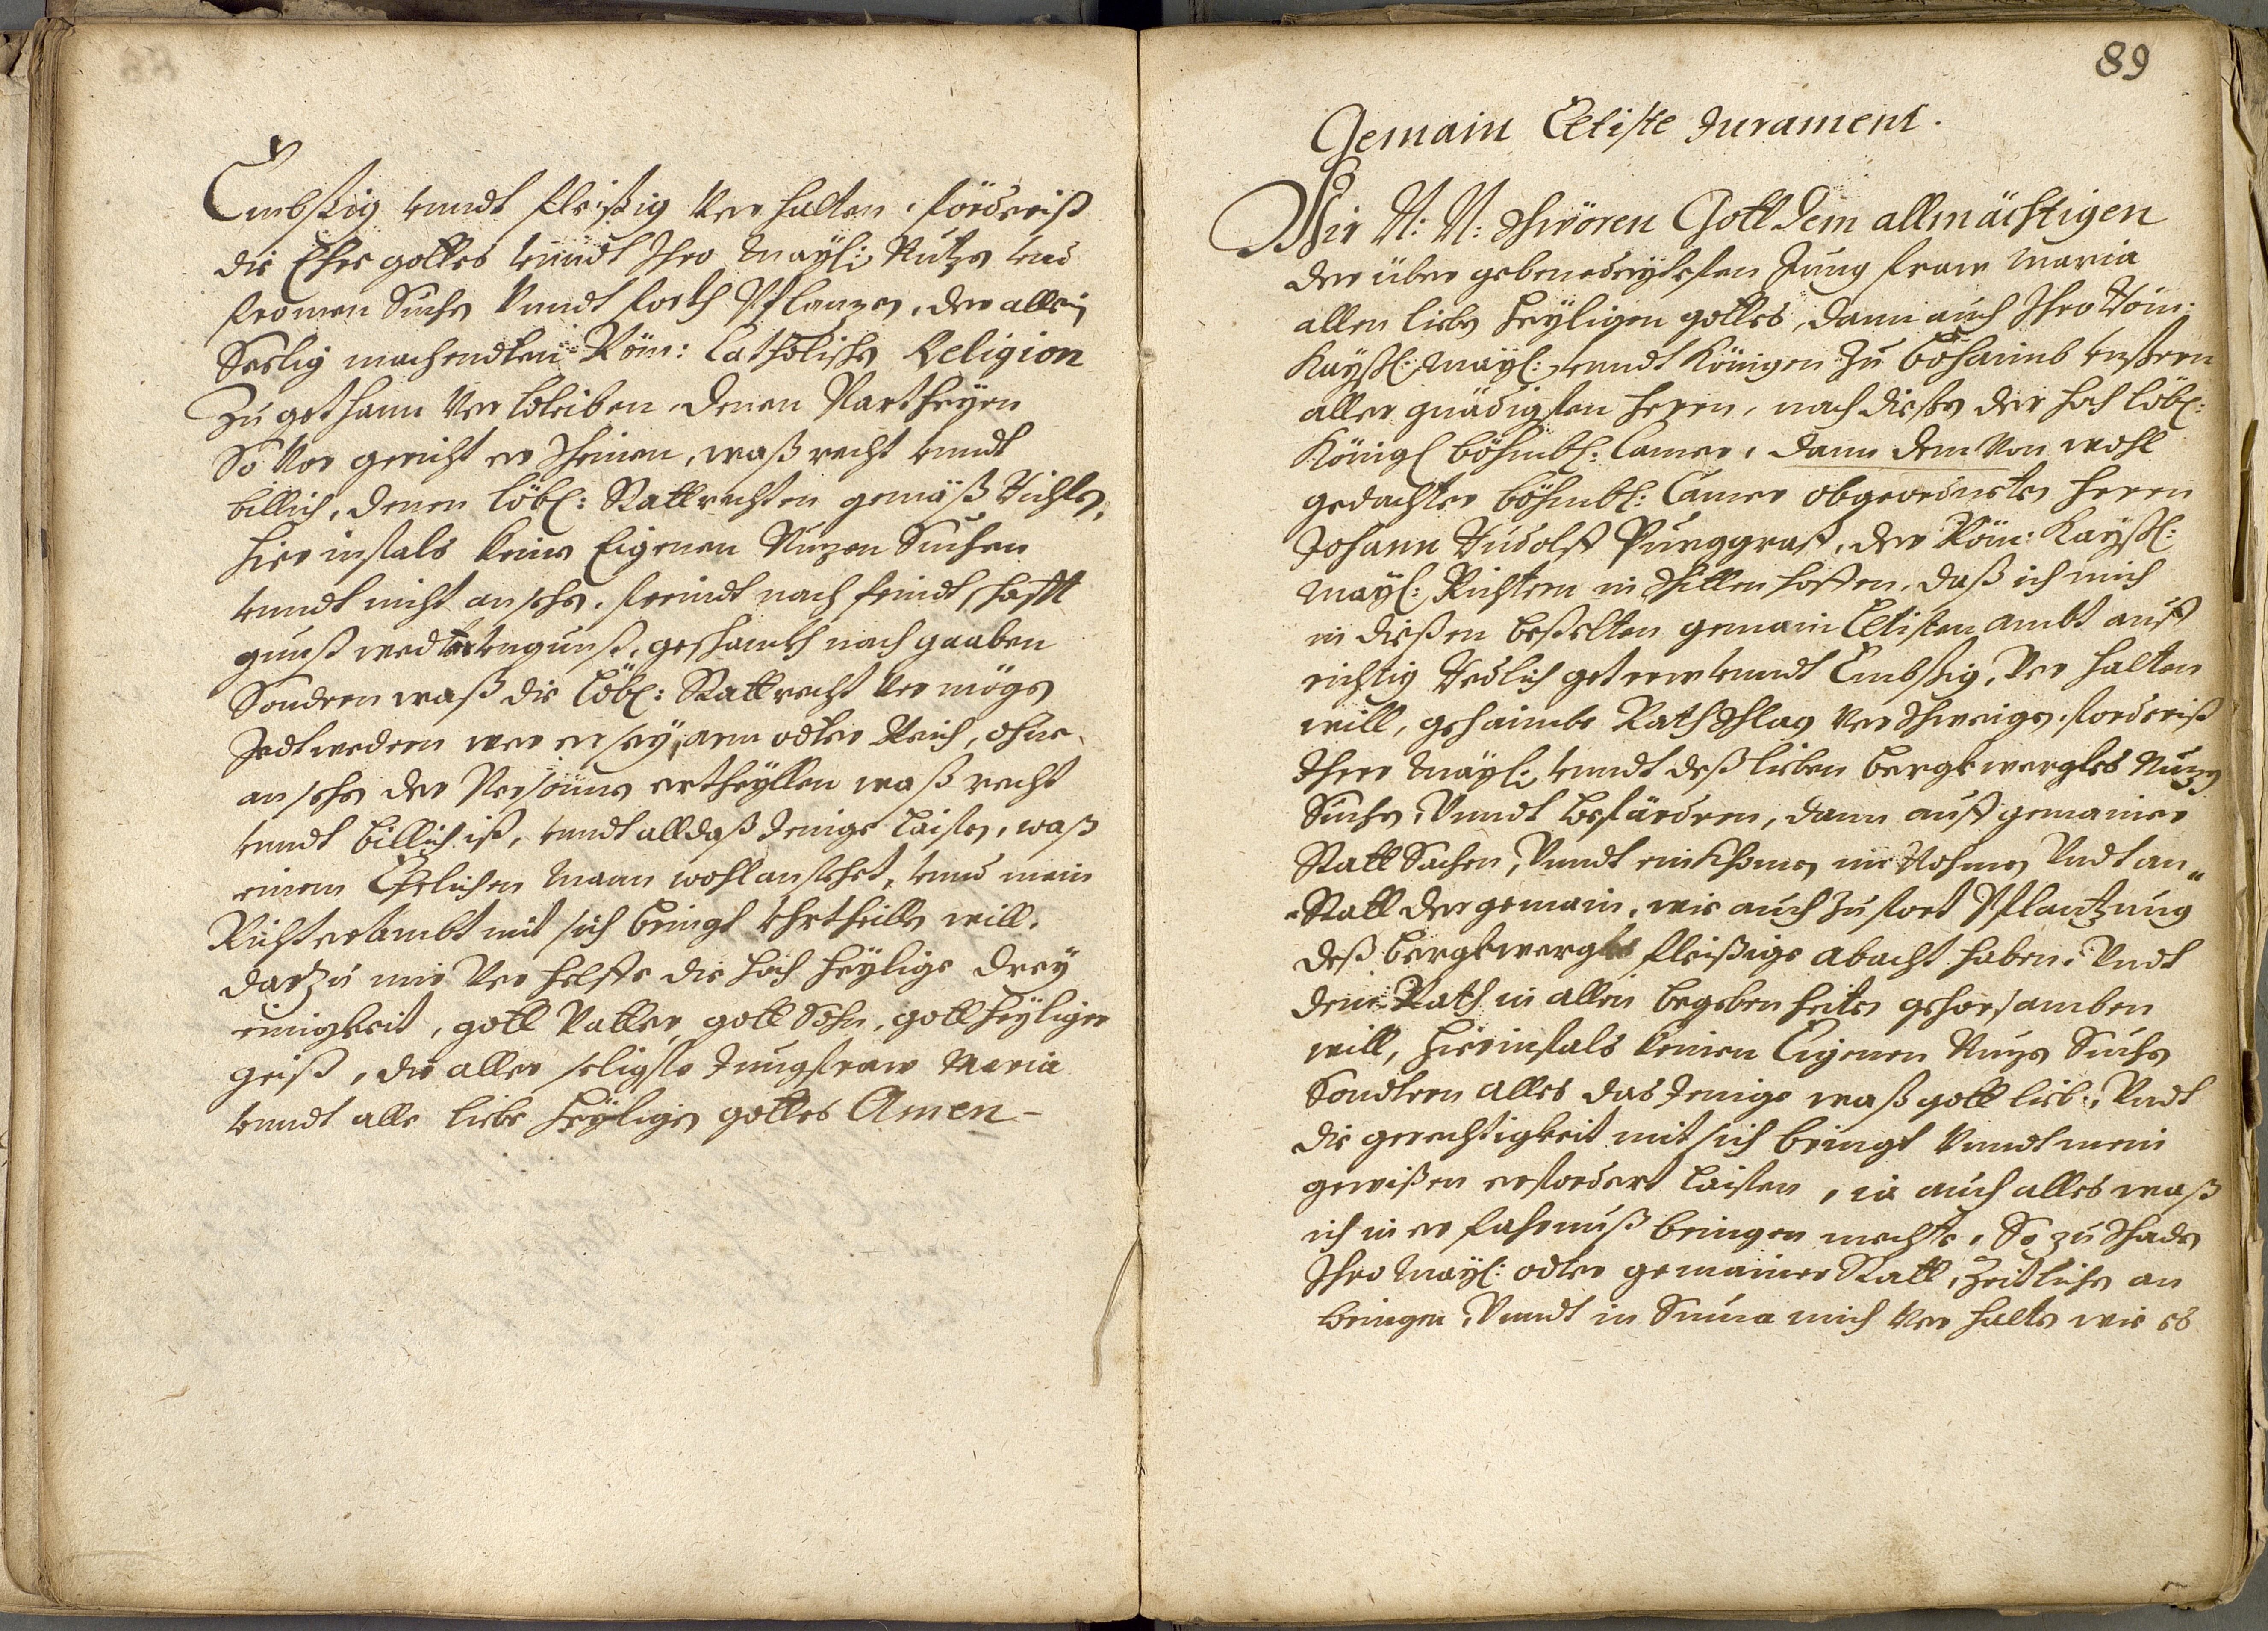 Embßig vnndt fleißig Verhalten, förderist
die Ehre gottes vnndt Ihro Mayl: Nutzen vnd
fromen Suchen Vnndt forth Pflanzen, der allein
Seelig machendten Röm: Catholischen Religion
Zu gethann Verbleiben, denen Partheyen
So Vor gericht er scheinen, waß recht vnndt
billich, denen löbl: Stattrechten gemäß Richten,
hierinfals keine Eigenen Nuzen Suchen
vnndt nicht ansehen, freindt noch feindtschafft
gunst weder vngunst, geschankh noch gaaben
Sondern waß die Löbl: Stattrecht Vermögen
Jedtwedern wer er sey, arm odter Reich, ohne
ansehen der Persohnen ertheyllen waß recht
vnndt billich ist, vnndt alldaß Jenige Laisten, waß
einem Ehrlichen Mann wohl anstehet, vnnd mein
Richterambt mit sich bringt Vhrtheillen will.
darzu mir Verhelffe die hoch heylige drey
einigkeit, gott Vatter, gott Sohn, gott heyliger
geist, die aller seligste Jungfraw Maria
vnndt alle liebe heyligen gottes Amen –
89
Gemain Eltiste Jurament.
Wir N: N: schwören Gott dem allmächtigen
der über gebenedeytesten Jung fraw Maria
allen lieben heyligen gottes, dann auch Ihro Röm:
Kayßl: Mayl: vnndt Königen zu Böhaimb vnßern
aller gnädigsten herrn, nach dießen der hoch löbl:
Königl böhmbl: Camer, dann dem Von wohl
gedachter böhmbl: Camer obgeordneten herrn
Johann Rudolff Purggraff, der Röm: Kayßl:
Mayl: Richtern in Schittenhoffen, daß ich mich
in dießen bestelten gemain Eltisten ambt auff
richtig Redlich getrew vnndt Embßig, Ver halten
will, gehaimbe Rathschlag Verschweigen, forderist
Ihrer Mayl: vnndt deß lieben bergkwergkes Nuzen
Suchen, Vnndt beförderen, dann auff gemainer
Statt Sachen, Vnndt einkhomen im Nahmen Vndt an„
„Statt der gemain, wie auch zu fort Pflantzung
deß bergkwergkes fleißige abacht haben, Vndt
dem Rath in allen begebenheiten gehorsamben
will, hierinfals keinen Eigenen Nuzen Suchen
Sondtern alles das Jenige waß gott lieb, Vndt
die gerechtigkeit mit sich bringt Vnndt mein
gewißen erfordert Laisten, ia auch alles waß
ich in er fahrnuß bringen mechte, So zu schaden
Ihro Mayl: odter gemainer Statt, Zeitlichen an
bringen, Vnndt in Suma mich Verhalten wie es